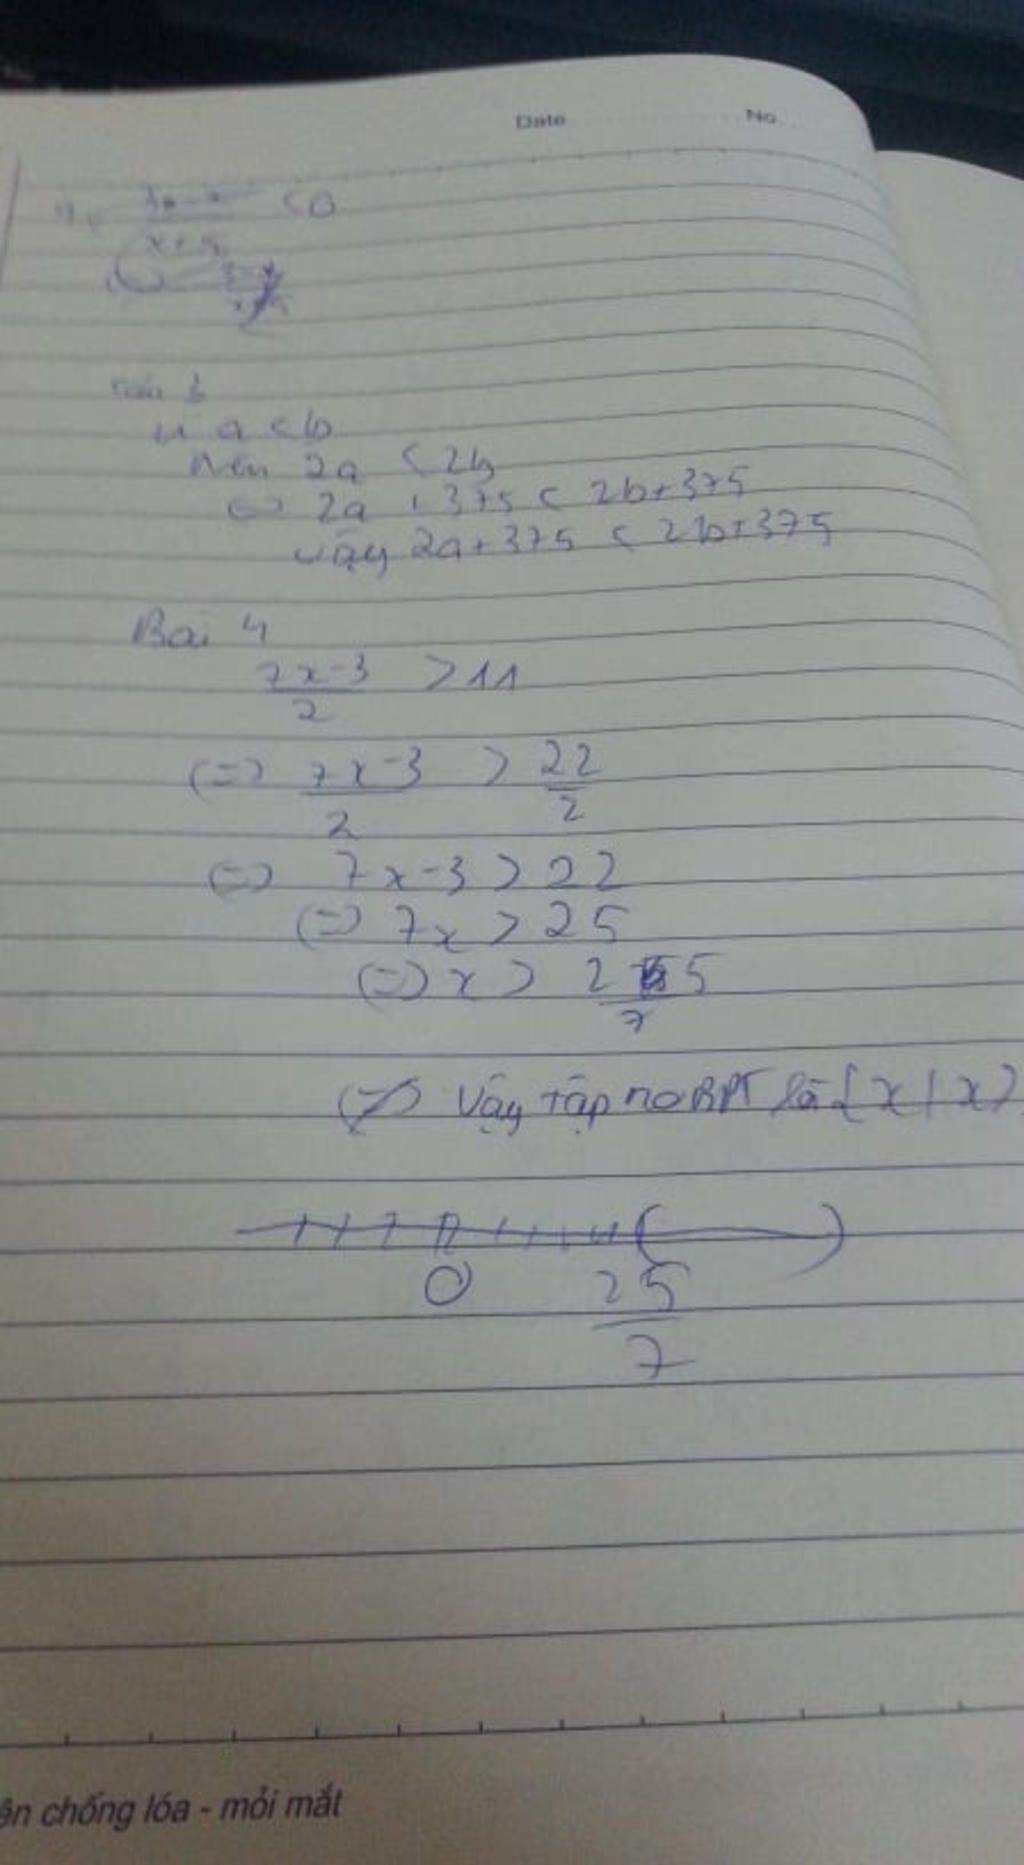 Date No
< 0
x + 5
a < b
Nên 2a < 2b
<=> 2a + 375 < 2b + 375
vậy 2a + 375 < 2b + 375
Bài 4
7x - 3 / 2 > 11
(=) 7x - 3 / 2 > 22 / 2
(=) 7x - 3 > 22
(=) 7x > 25
(=) x > 25 / 7
Vậy tập no BPT là { x / x >
0 25 / 7
ên chống lóa - mỏi mắt